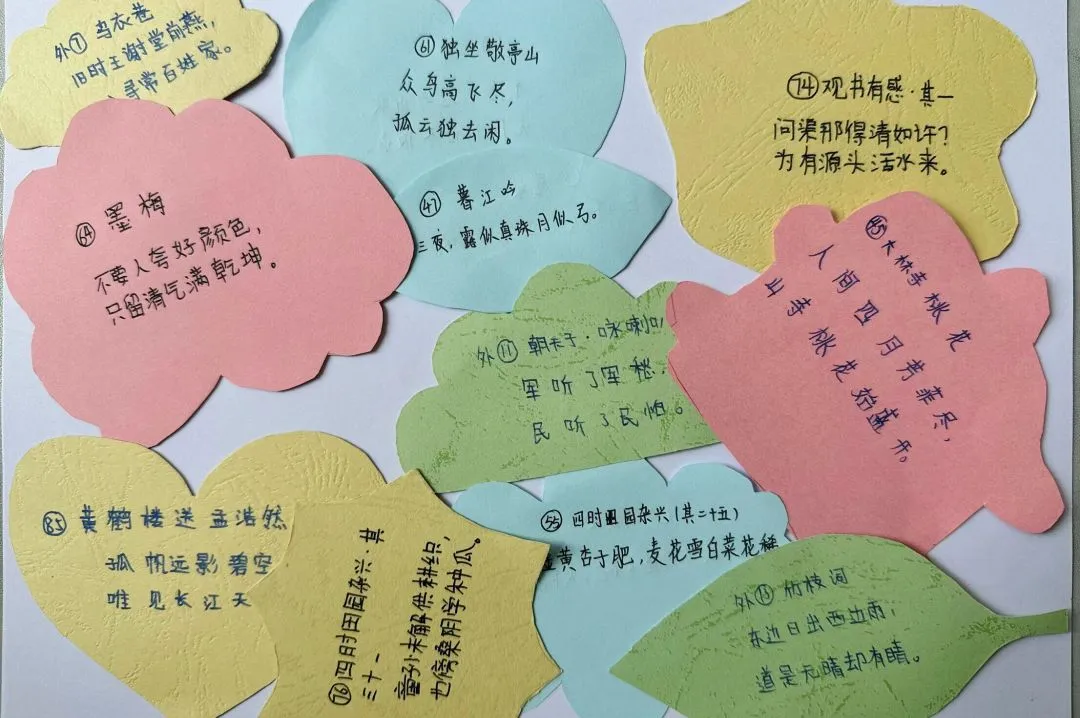 外⑦ 乌衣巷
旧时王谢堂前燕,
寻常百姓家。
61 独坐敬亭山
众鸟高飞尽,
孤云独去闲。
74 观书有感·其一
问渠那得清如许?
为有源头活水来。
64 墨梅
不要人夸好颜色,
只留清气满乾坤。
47 暮江吟
三夜,露似真珠月似弓。
45 大林寺桃花
人间四月芳菲尽,
山寺桃花始盛开。
外⑪ 朝天子·咏喇叭
军听了军愁,
民听了民怕。
85 黄鹤楼送孟浩然
孤帆远影碧空
唯见长江天
76 四时田园杂兴·其
三十一
童孙未解供耕织
也傍桑阴学种瓜。
55 四时田园杂兴(其二十五)
黄杏子肥,麦花雪白菜花稀
外⑬ 竹枝词
东边日出西边雨,
道是无晴却有晴。